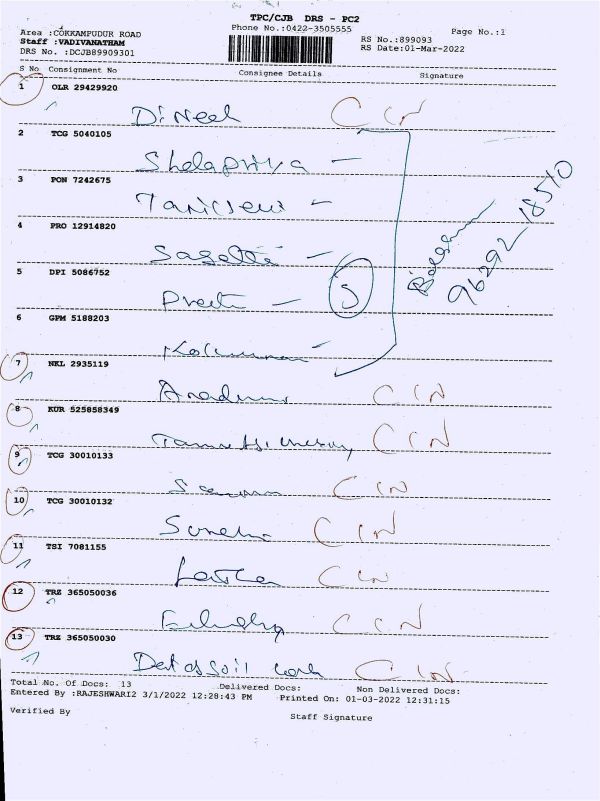 TPC/CJB DRS - PC2
Phone No.:0422-3505555
Page No.:1
Area :COKKAMPUDUR ROAD
Staff :VADIVANATHAM
RS No.:899093
DRS No. :DCJB89909301
RS Date:01-Mar-2022
S No Consignment No Consignee Details Signature
1 OLR 29429920
Dineel CCN
2 TCG 5040105
Shelapriya -
3 PON 7242675
4 PRO 12914820
5 DPI 5086752
Preeti - 5
96292 18510
6 GPM 5188203
7 NKL 2935119
CCN
8 KUR 525858349
CCN
9 TCG 30010133
CCN
10 TCG 30010132
CCN
11 TSI 7081155
CCN
12 TRZ 365050036
CCN
13 TRZ 365050030
CCN
Total No. Of Docs: 13 Delivered Docs: Non Delivered Docs:
Entered By :RAJESHWARI2 3/1/2022 12:28:43 PM Printed On: 01-03-2022 12:31:15
Verified By
Staff Signature